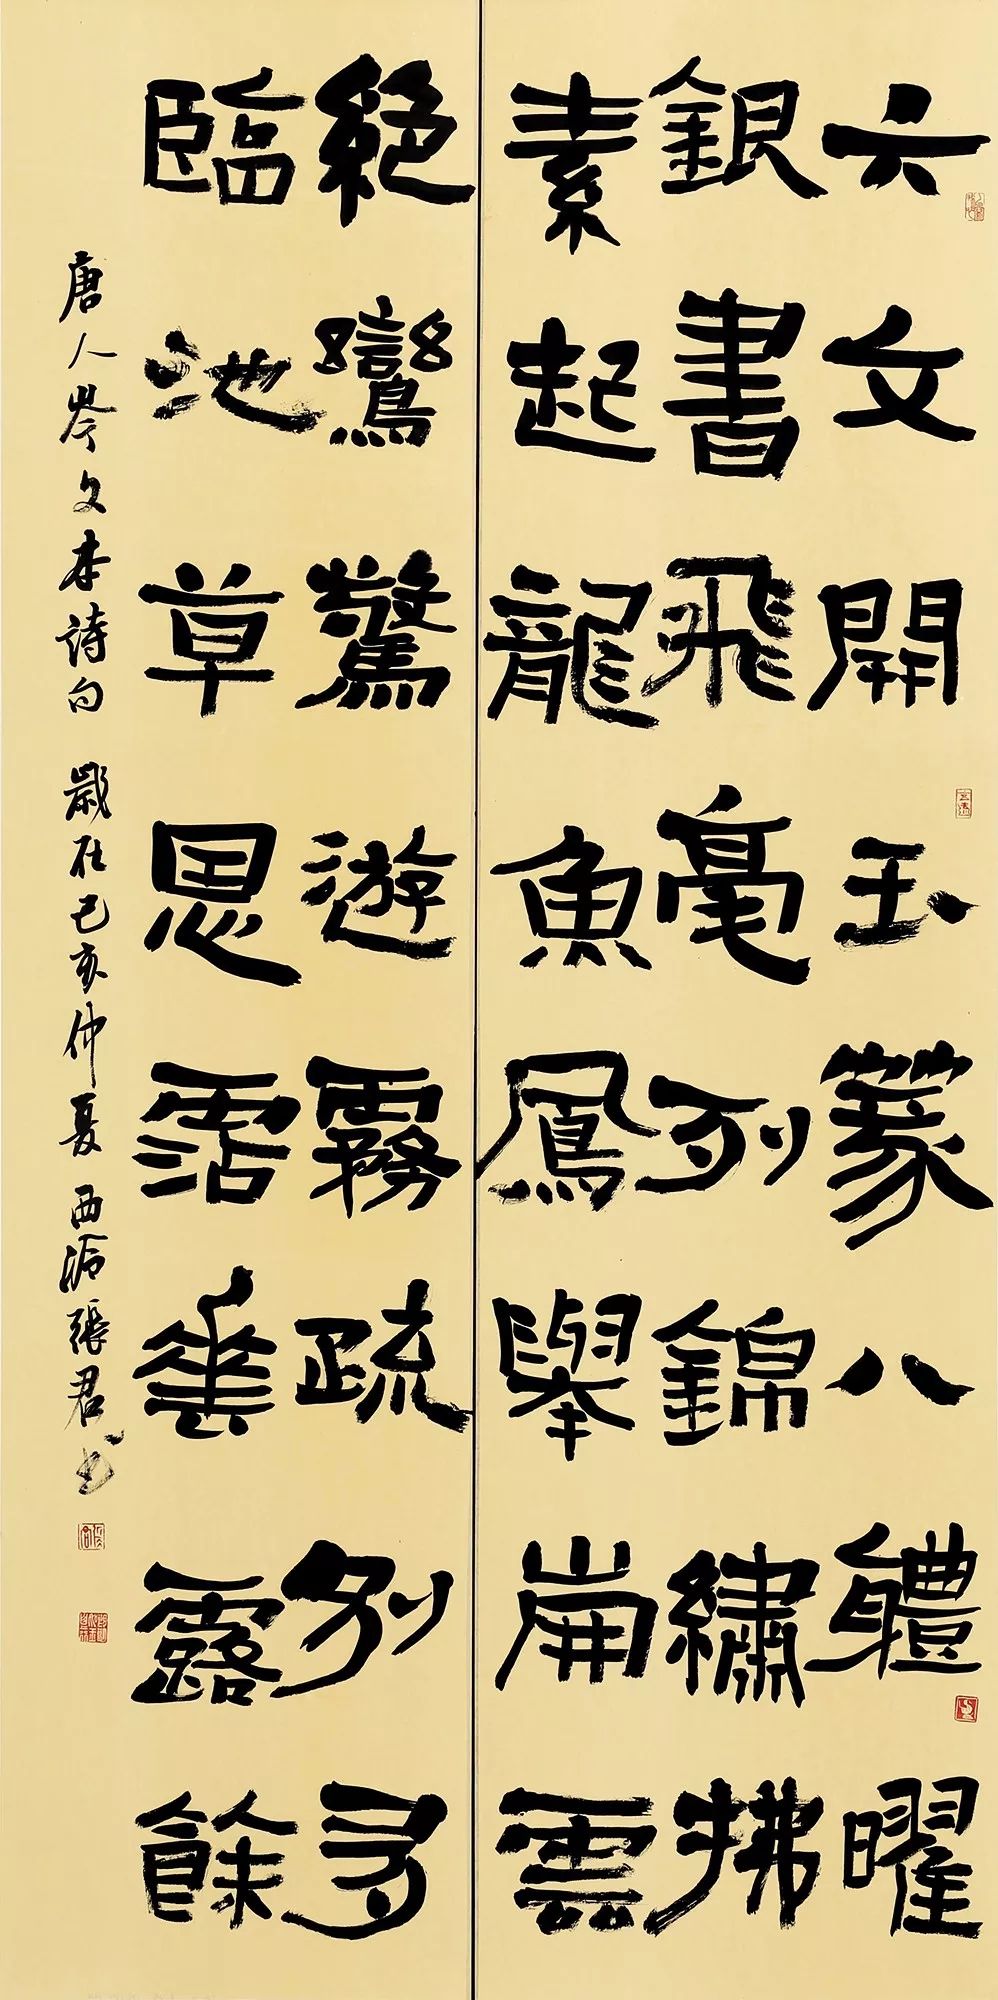 六文開玉篆八軆曜
銀書飛毫列錦繡拂
素起龍魚鳳舉崩雲
絶鸞驚遊霧疏別有
臨池草恩霑垂露餘
唐人岑文本詩句 歲在己亥仲夏 西泠張君书